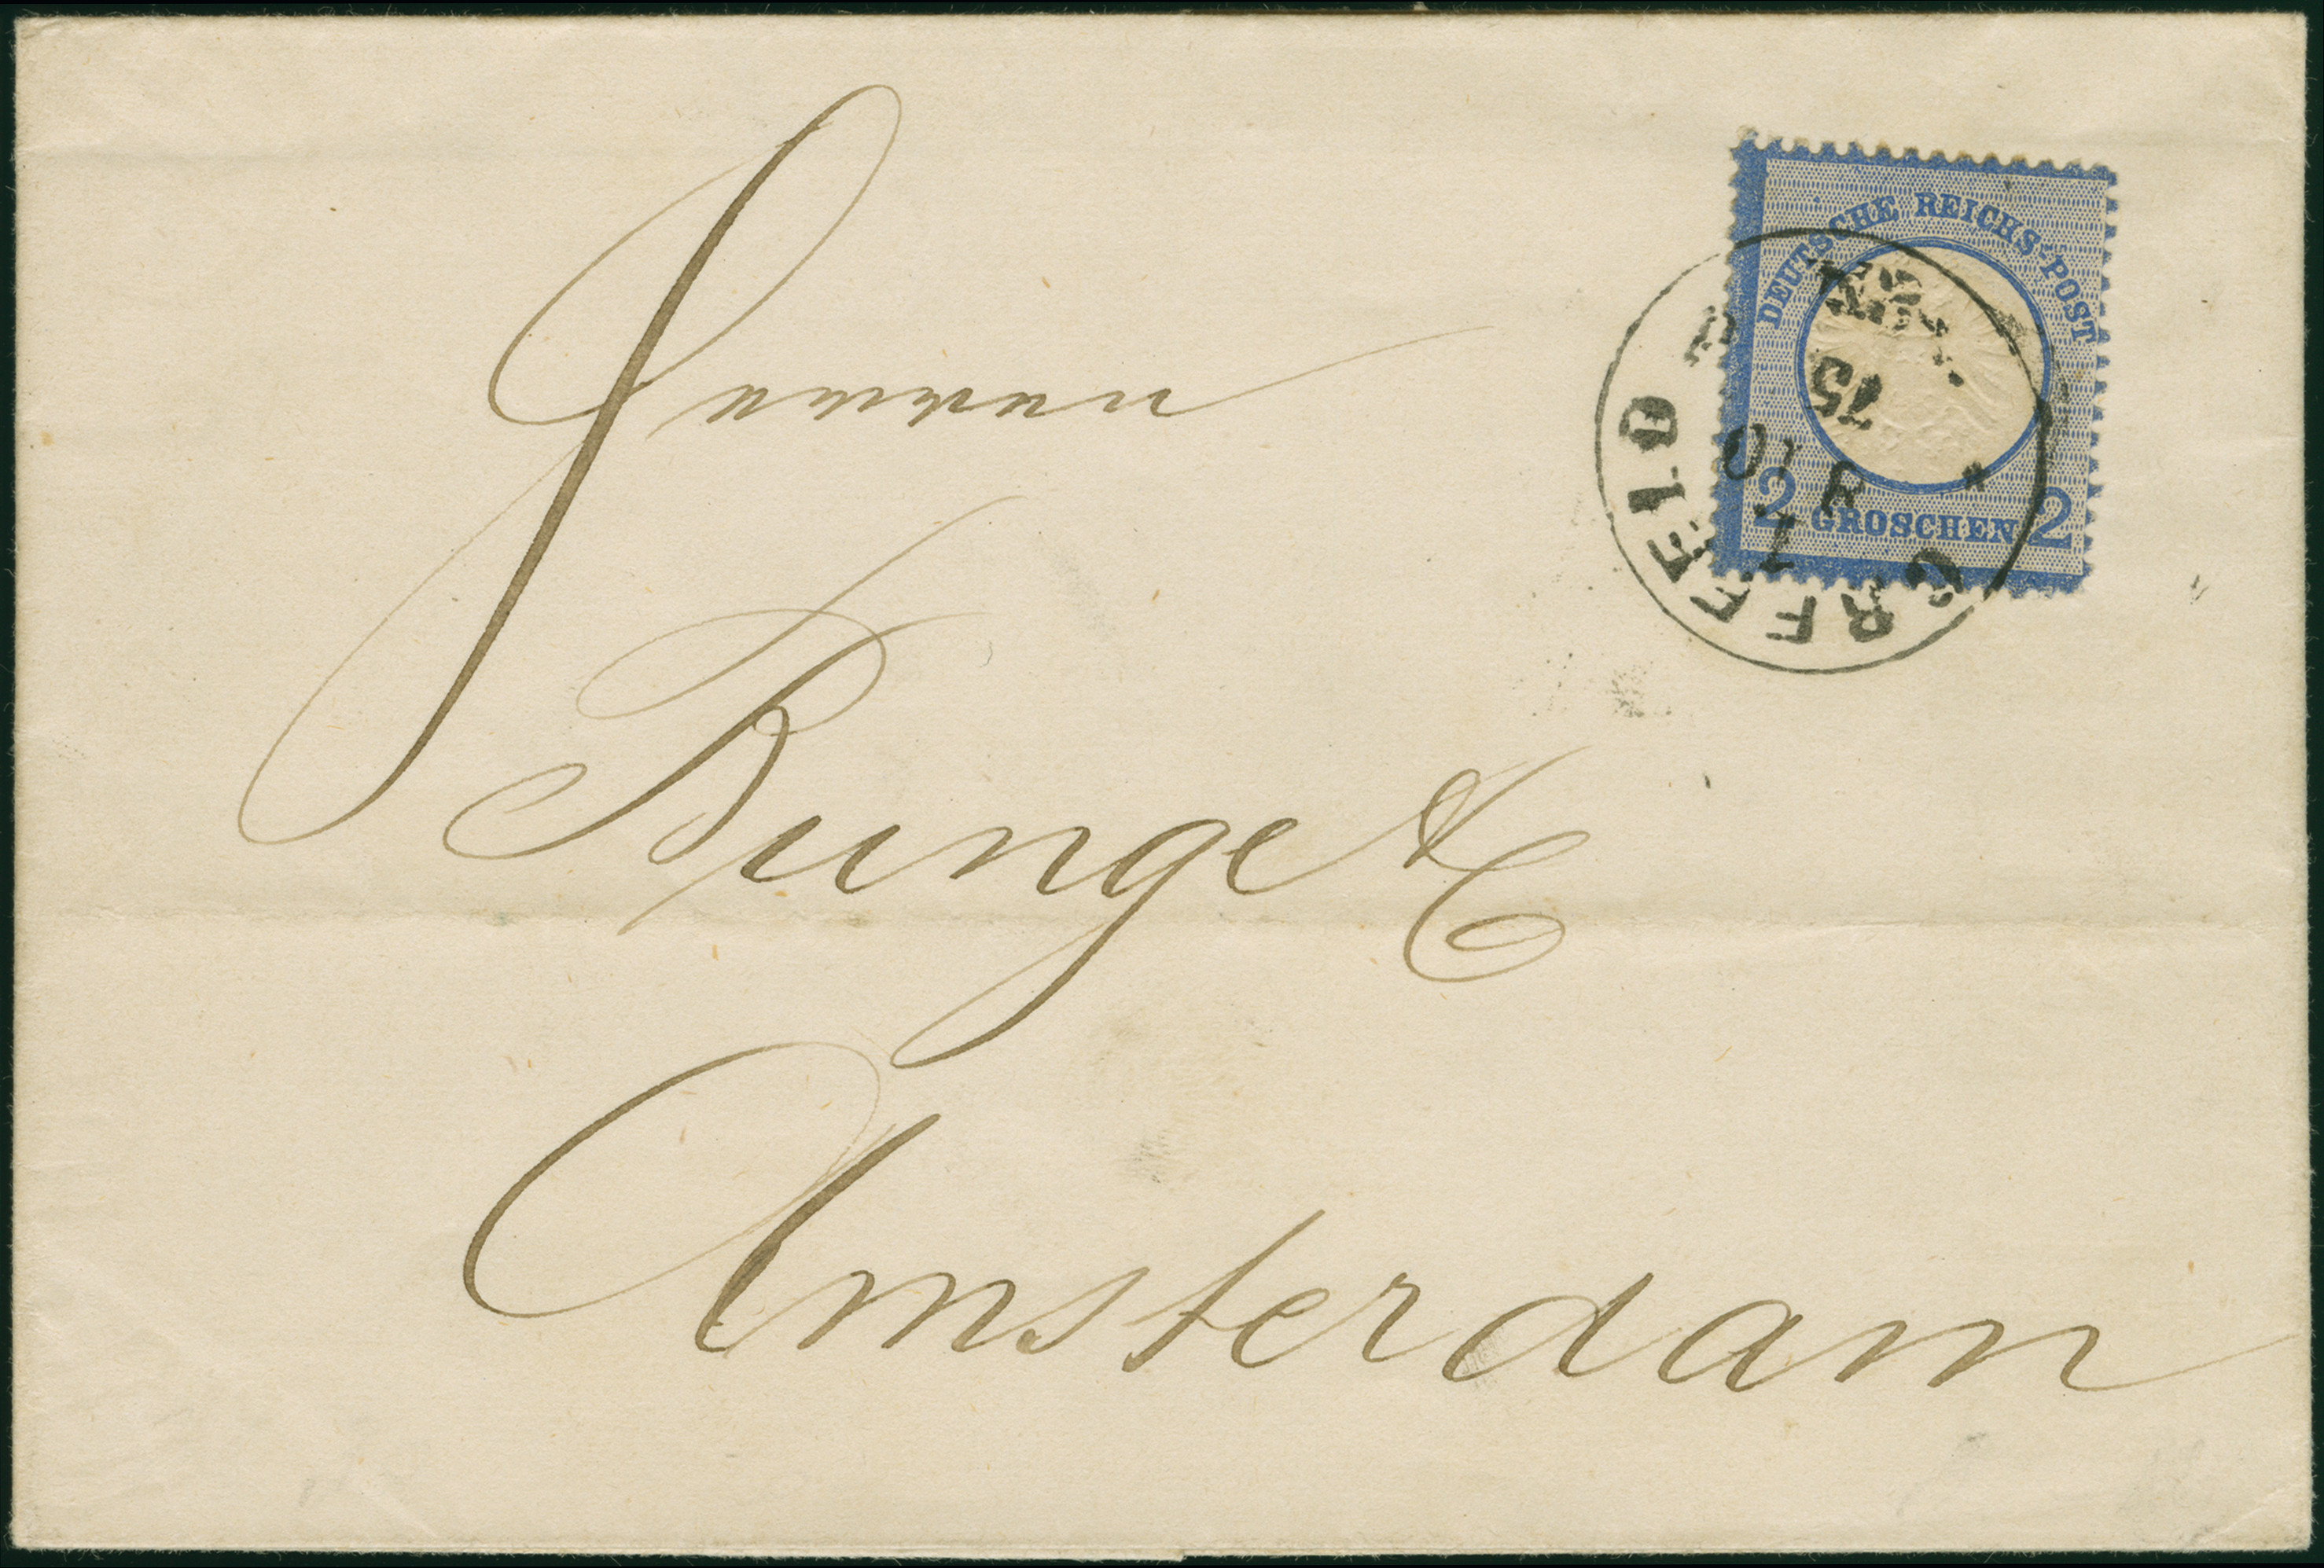 Herren
Bunge & C
Amsterdam
DEUTSCHE REICHS-POST
2 GROSCHEN 2
CREFELD